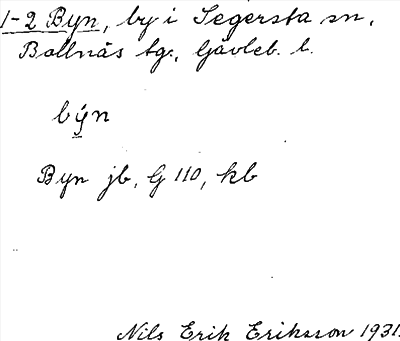 1-2 Byn, by i Segersta sn,
Bollnäs tg., Gävleb. l.
bẏ́n
Byn jb, G 110, kb
Nils Erik Eriksson 1931.